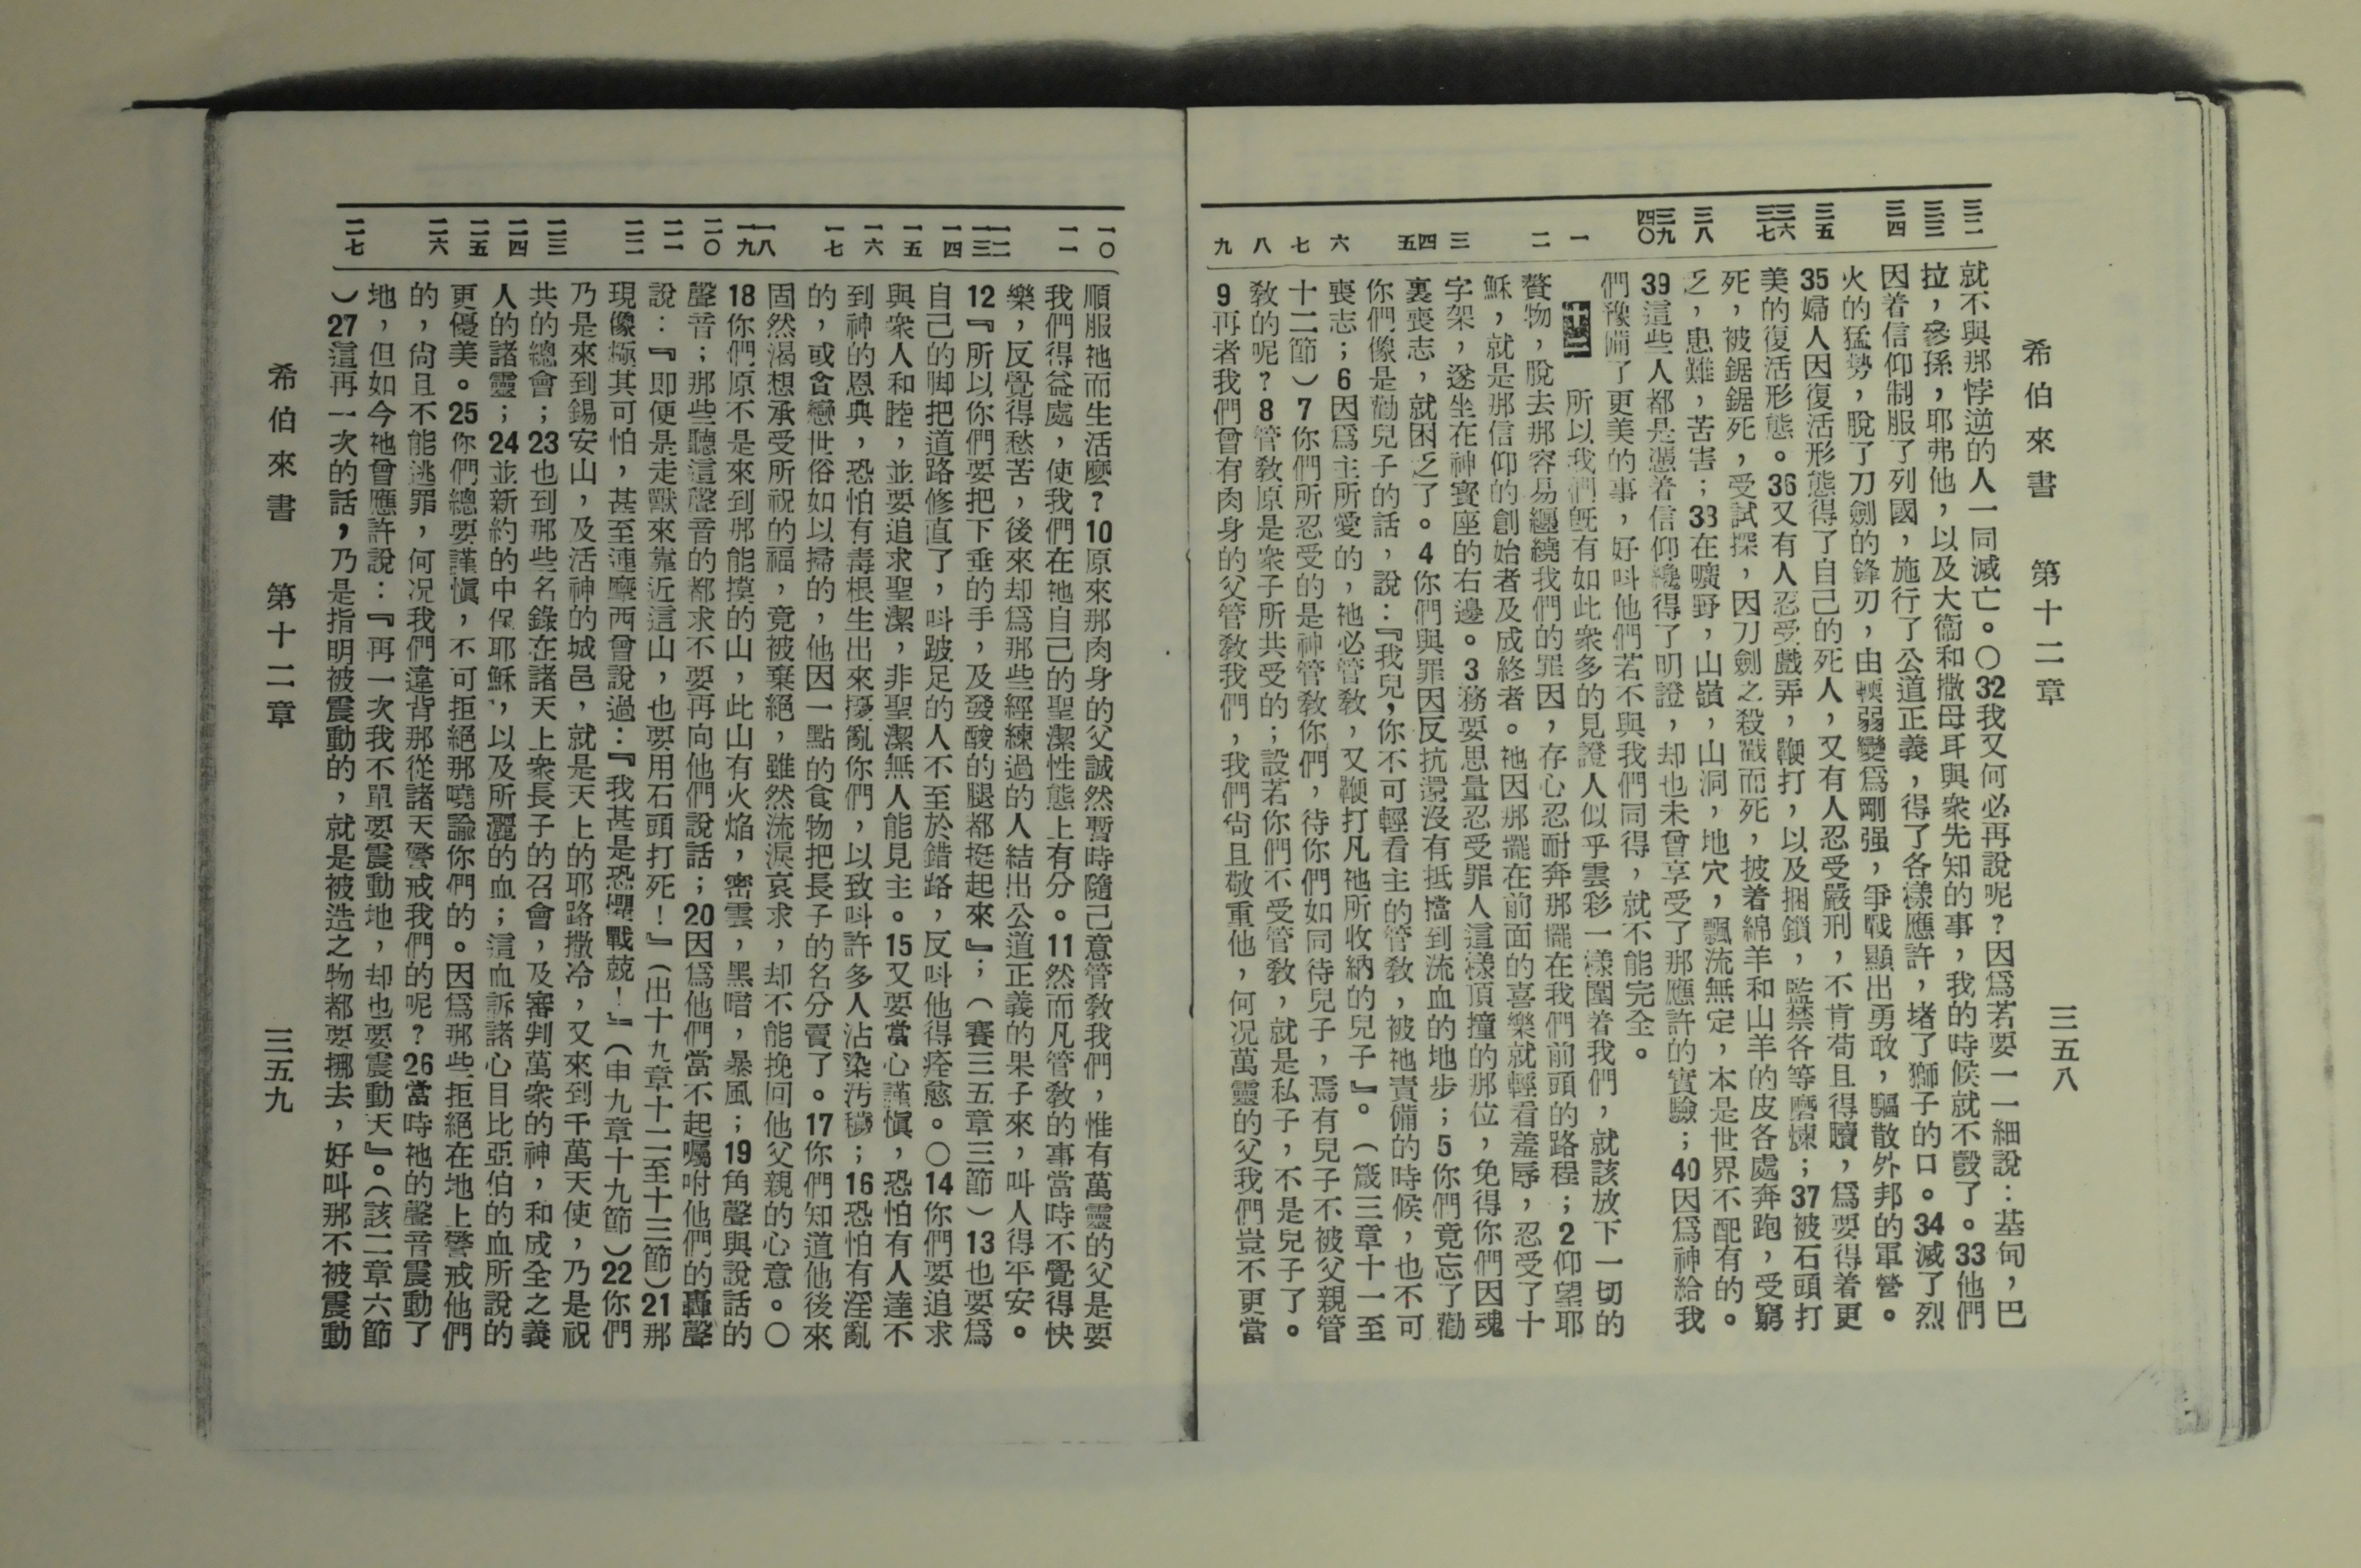 希伯來書　第十二章　三五八
三二　三三　三四　三五　三六　三七　三八　三九　四〇　一　二　三　四　五　六　七　八　九
就不與那悖逆的人一同滅亡。〇32我又何必再說呢？因爲若要一一細說：基甸，巴
拉，參孫，耶弗他，以及大衞和撒母耳與衆先知的事，我的時候就不彀了。33他們
因着信仰制服了列國，施行了公道正義，得了各樣應許，堵了獅子的口。34滅了烈
火的猛勢，脫了刀劍的鋒刃，由輭弱變爲剛强，爭戰顯出勇敢，驅散外邦的軍營。
35婦人因復活形態得了自己的死人，又有人忍受嚴刑，不肯苟且得贖，爲要得着更
美的復活形態。36又有人忍受戲弄，鞭打，以及捆鎖，監禁各等磨煉；37被石頭打
死，被鋸鋸死，受試探，因刀劍之殺戮而死，披着綿羊和山羊的皮各處奔跑，受窮
乏，患難，苦害；38在曠野，山嶺，山洞，地穴，飄流無定，本是世界不配有的。
39這些人都是憑着信仰纔得了明證，却也未曾享受了那應許的實驗；40因爲神給我
們豫備了更美的事，好呌他們若不與我們同得，就不能完全。
十二　所以我們旣有如此衆多的見證人似乎雲彩一樣圍着我們，就該放下一切的
贅物，脫去那容易纏繞我們的罪因，存心忍耐奔那擺在我們前頭的路程；2仰望耶
穌，就是那信仰的創始者及成終者。祂因那擺在前面的喜樂就輕看羞辱，忍受了十
字架，遂坐在神寳座的右邊。3務要思量忍受罪人這樣頂撞的那位，免得你們因魂
裏喪志，就困乏了。4你們與罪因反抗還沒有抵擋到流血的地步；5你們竟忘了勸
你們像是勸兒子的話，說：『我兒，你不可輕看主的管敎，被祂責備的時候，也不可
喪志；6因爲主所愛的，祂必管敎，又鞭打凡祂所收納的兒子』。（箴三章十一至
十二節）7你們所忍受的是神管敎你們，待你們如同待兒子，焉有兒子不被父親管
敎的呢？8管敎原是衆子所共受的；設若你們不受管敎，就是私子，不是兒子了。
9再者我們曾有肉身的父管敎我們，我們尙且敬重他，何况萬靈的父我們豈不更當
一〇　一一　一二　一三　一四　一五　一六　一七　一八　一九　二〇　二一　二二　二三　二四　二五　二六　二七
順服祂而生活麽？10原來那肉身的父誠然暫時隨己意管敎我們，惟有萬靈的父是要
我們得益處，使我們在祂自己的聖潔性態上有分。11然而凡管敎的事當時不覺得快
樂，反覺得愁苦，後來却爲那些經練過的人結出公道正義的果子來，叫人得平安。
12『所以你們要把下垂的手，及發酸的腿都挺起來』；（賽三五章三節）13也要爲
自己的脚把道路修直了，呌跛足的人不至於錯路，反呌他得痊愈。〇14你們要追求
與衆人和睦，並要追求聖潔，非聖潔無人能見主。15又要當心謹愼，恐怕有人達不
到神的恩典，恐怕有毒根生出來擾亂你們，以致呌許多人沾染汚穢；16恐怕有淫亂
的，或貪戀世俗如以掃的，他因一點的食物把長子的名分賣了。17你們知道他後來
固然渴想承受所祝的福，竟被棄絕，雖然流淚哀求，却不能挽回他父親的心意。〇
18你們原不是來到那能摸的山，此山有火焰，密雲，黑暗，暴風；19角聲與說話的
聲音；那些聽這聲音的都求不要再向他們說話；20因爲他們當不起囑咐他們的轟聲
說：『卽便是走獸來靠近這山，也要用石頭打死！』（出十九章十二至十三節）21那
現像極其可怕，甚至連摩西曾說過：『我甚是恐懼戰兢！』（申九章十九節）22你們
乃是來到錫安山，及活神的城邑，就是天上的耶路撒冷，又來到千萬天使，乃是祝
共的總會；23也到那些名錄在諸天上衆長子的召會，及審判萬衆的神，和成全之義
人的諸靈；24並新約的中保耶穌，以及所灑的血；這血訴諸心目比亞伯的血所說的
更優美。25你們總要謹愼，不可拒絕那曉諭你們的。因爲那些拒絕在地上警戒他們
的，尙且不能逃罪，何况我們違背那從諸天警戒我們的呢？26當時祂的聲音震動了
地，但如今祂曾應許說：『再一次我不單要震動地，却也要震動天』。（該二章六節
）27這再一次的話，乃是指明被震動的，就是被造之物都要挪去，好叫那不被震動
希伯來書　第十二章　三五九